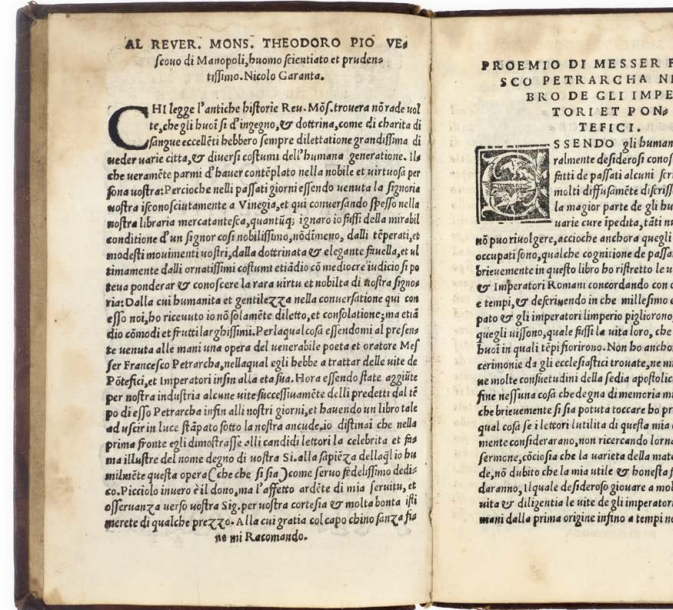 AL REVER. MONS. THEODORO PIO VE⸗
ſcouo di Manopoli, huomo ſcientiato et pruden⸗
tiſſimo. Nicolo Garanta.
CHI legge l'antiche hiſtorie Reu. Mōſ. trouera nō rade uol
te, che gli huoī ſi d'ingegno, & dottrina, come di charita di
ſangue eccellēti hebbero ſempre dilettatione grandiſſima di
ueder uarie citta, & diuerſi coſtumi dell'humana generatione. Il⸗
che ueramēte parmi d'hauer contēplato nella nobile et uirtuoſa per
ſona uoſtra: Percioche nelli paſſati giorni eſſendo uenuta la ſignoria
uoſtra iſconoſciutamente a Vinegia, et qui conuerſando ſpeſſo nella
noſtra libraria mercanteſca, quantūq; ignaro io fuſſi della mirabil
conditione d'un ſignor coſi nobiliſſimo, nōdimeno, dalli tēperati, et
modeſti mouimenti uoſtri, dalla dottrinata & elegante fauella, et ul
timamente dalli ornatiſſimi coſtumi etiādio cō mediocre iudicio ſi po
teua ponderar & conoſcere la rara uirtu et nobilta di noſtra ſigno⸗
ria: Dalla cui humanita et gentilezza nella conuerſatione qui con
eſſo noi, ho riceuuto io nō ſolamēte diletto, et conſolatione; ma etiā
dio cōmodi et frutti larghiſſimi. Perlaqualcoſa eſſendomi al preſen⸗
te uenuta alle mani una opera del uenerabile poeta et oratore Meſ
ſer Franceſco Petrarcha, nellaqual egli hebbe a trattar delle uite de
Pōtefici, et Imperatori inſin alla eta ſua. Hora eſſendo ſtate aggiūte
per noſtra induſtria alcune uite ſucceſſiuamēte delli predetti dal tē
po di eſſo Petrarcha infin alli noſtri giorni, et hauendo un libro tale
ad uſcir in luce ſtāpato ſotto la noſtra ancude, io diſtinai che nella
prima fronte egli dimoſtraſſe alli candidi lettori la celebrita et fa⸗
ma illuſtre del nome degno di uoſtra Si. alla ſapiēza dellaql io hu
milmēte queſta opera (che che ſi ſia) come ſeruo fedeliſſimo dedi⸗
co. Picciolo inuero è il dono, ma l'affetto ardēte di mia ſeruitu, et
oſſeruanza uerſo uoſtra Sig. per uoſtra corteſia & molta bonta iſti
merete di qualche prezzo. Alla cui gratia col capo chino ſanza fi⸗
ne mi Racomando.
PROEMIO DI MESSER F
SCO PETRARCHA NE
BRO DE GLI IMPE
TORI ET PON⸗
TEFICI.
ESSENDO gli human
ralmente deſideroſi conoſ
fatti de paſſati alcuni ſcri
molti diffuſamēte diſcriſſ
la magior parte de gli hu
uarie cure ipedita, tāti nu
nō puo riuolgere, accioche anchora quegli
occupati ſono, qualche cognitione de paſſa
brieuemente in queſto libro ho riſtretto le u
& Imperatori Romani concordando con d
e tempi, & deſcriuendo in che milleſimo e
pato & gli imperatori limperio pigliorono
quegli uiſſono, quale fuſſi la uita loro, che
huoī in quali tēpi fiorirono. Non ho anchor
cerimonie da gli eccleſiaſtici trouate, ne mi
ne molte conſuetudini della ſedia apoſtolic
fine neſſuna coſa che degna di memoria m
che brieuemente ſi ſia potuta toccare ho pr
qual coſa ſe i lettori lutilita di queſta mia
mente conſiderarano, non ricercando lorna
ſermone, cōcioſia che la uarieta della mate
de, nō dubito che la mia utile & honeſta f
daranno, Ilquale deſideroſo giouare a mol
uita & diligentia le uite de gli imperatori
mani dalla prima origine infino a tempi no